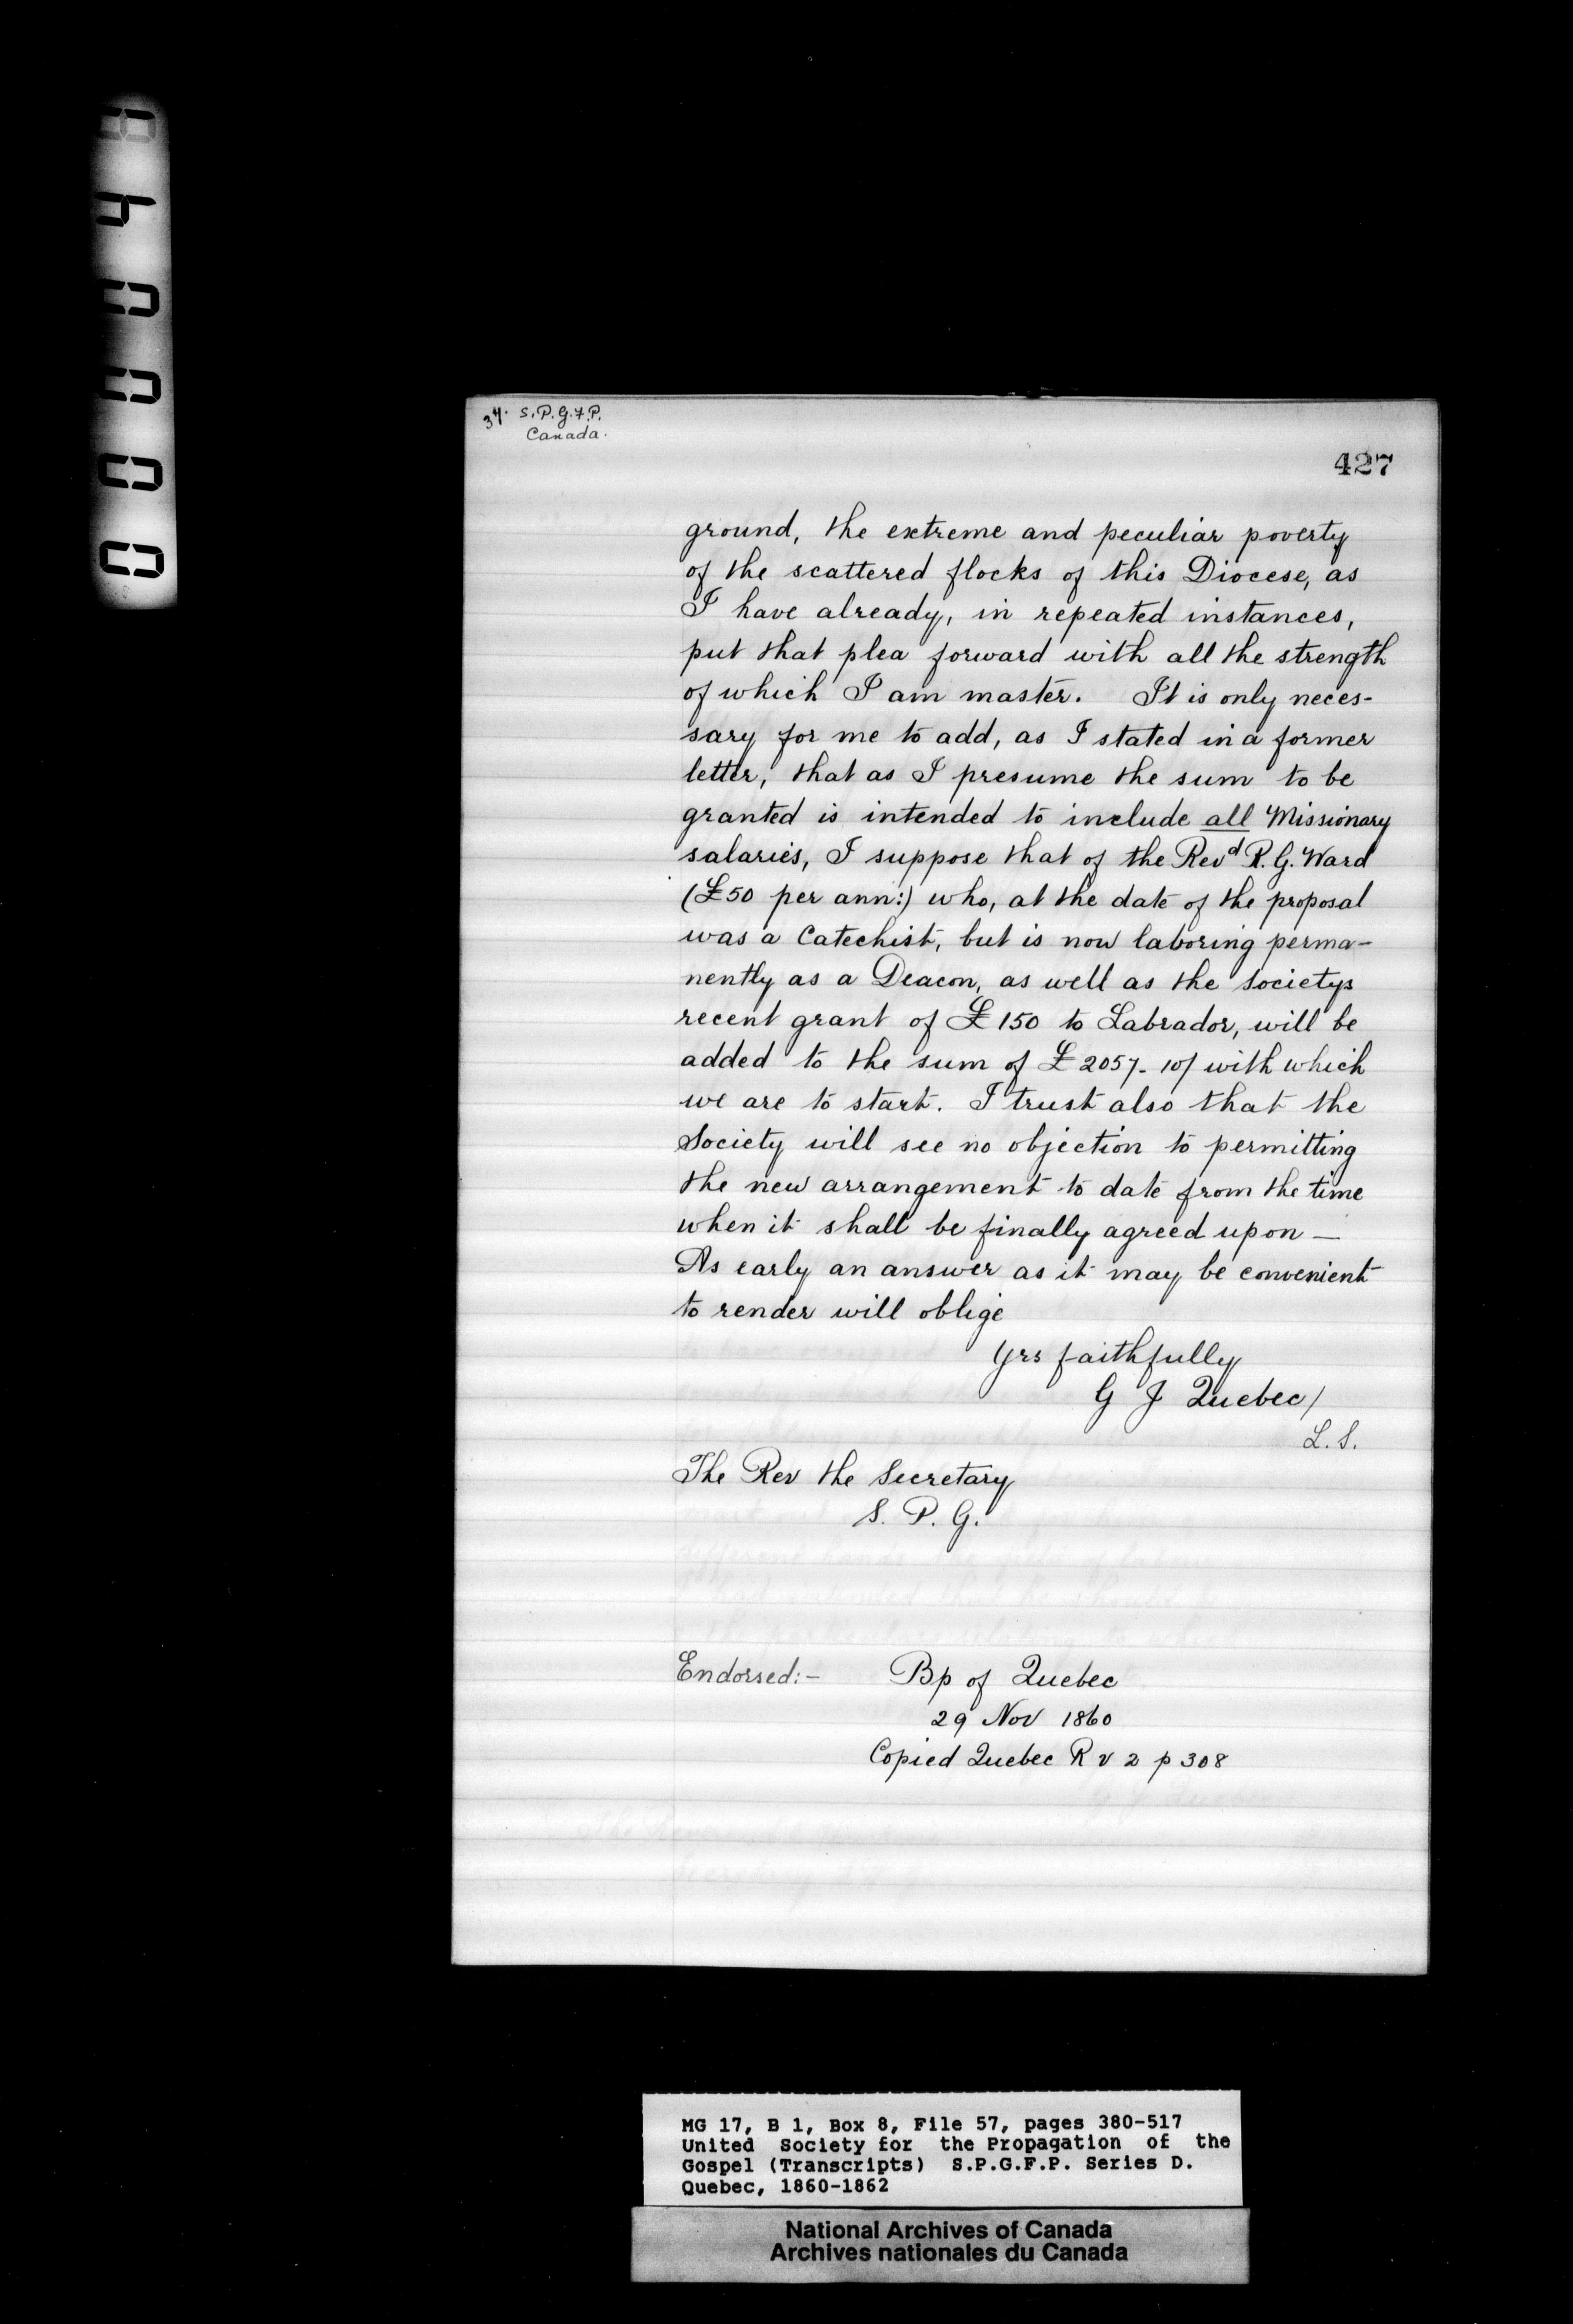 34. S.P.G.F.P.
Canada.
427
ground, the extreme and peculiar poverty
of the scattered flocks of this Diocese, as
I have already, in repeated instances,
put that plea forward with all the strength
of which I am master. It is only neces-
sary for me to add, as I stated in a former
letter, that as I presume the sum to be
granted is intended to include all Missionary
salaries, I suppose that of the Revd R. G. Ward
(£50 per ann:) who, at the date of the proposal
was a Catechist, but is now laboring perma-
nently as a Deacon, as well as the Societys
recent grant of £150 to Labrador, will be
added to the sum of £2057- 10/ with which
we are to start. I trust also that the
Society will see no objection to permitting
the new arrangement to date from the time
when it shall be finally agreed upon —
As early an answer as it may be convenient
to render will oblige
Yrs faithfully
G J Quebec/
L.S.
The Rev the Secretary
S. P. G.
Endorsed:- Bp of Quebec
29 Nov 1860
Copied Quebec R v 2 p 308
MG 17, B 1, Box 8, File 57, pages 380-517
United Society for the Propagation of the
Gospel (Transcripts) S.P.G.F.P. Series D.
Quebec, 1860-1862
National Archives of Canada
Archives nationales du Canada